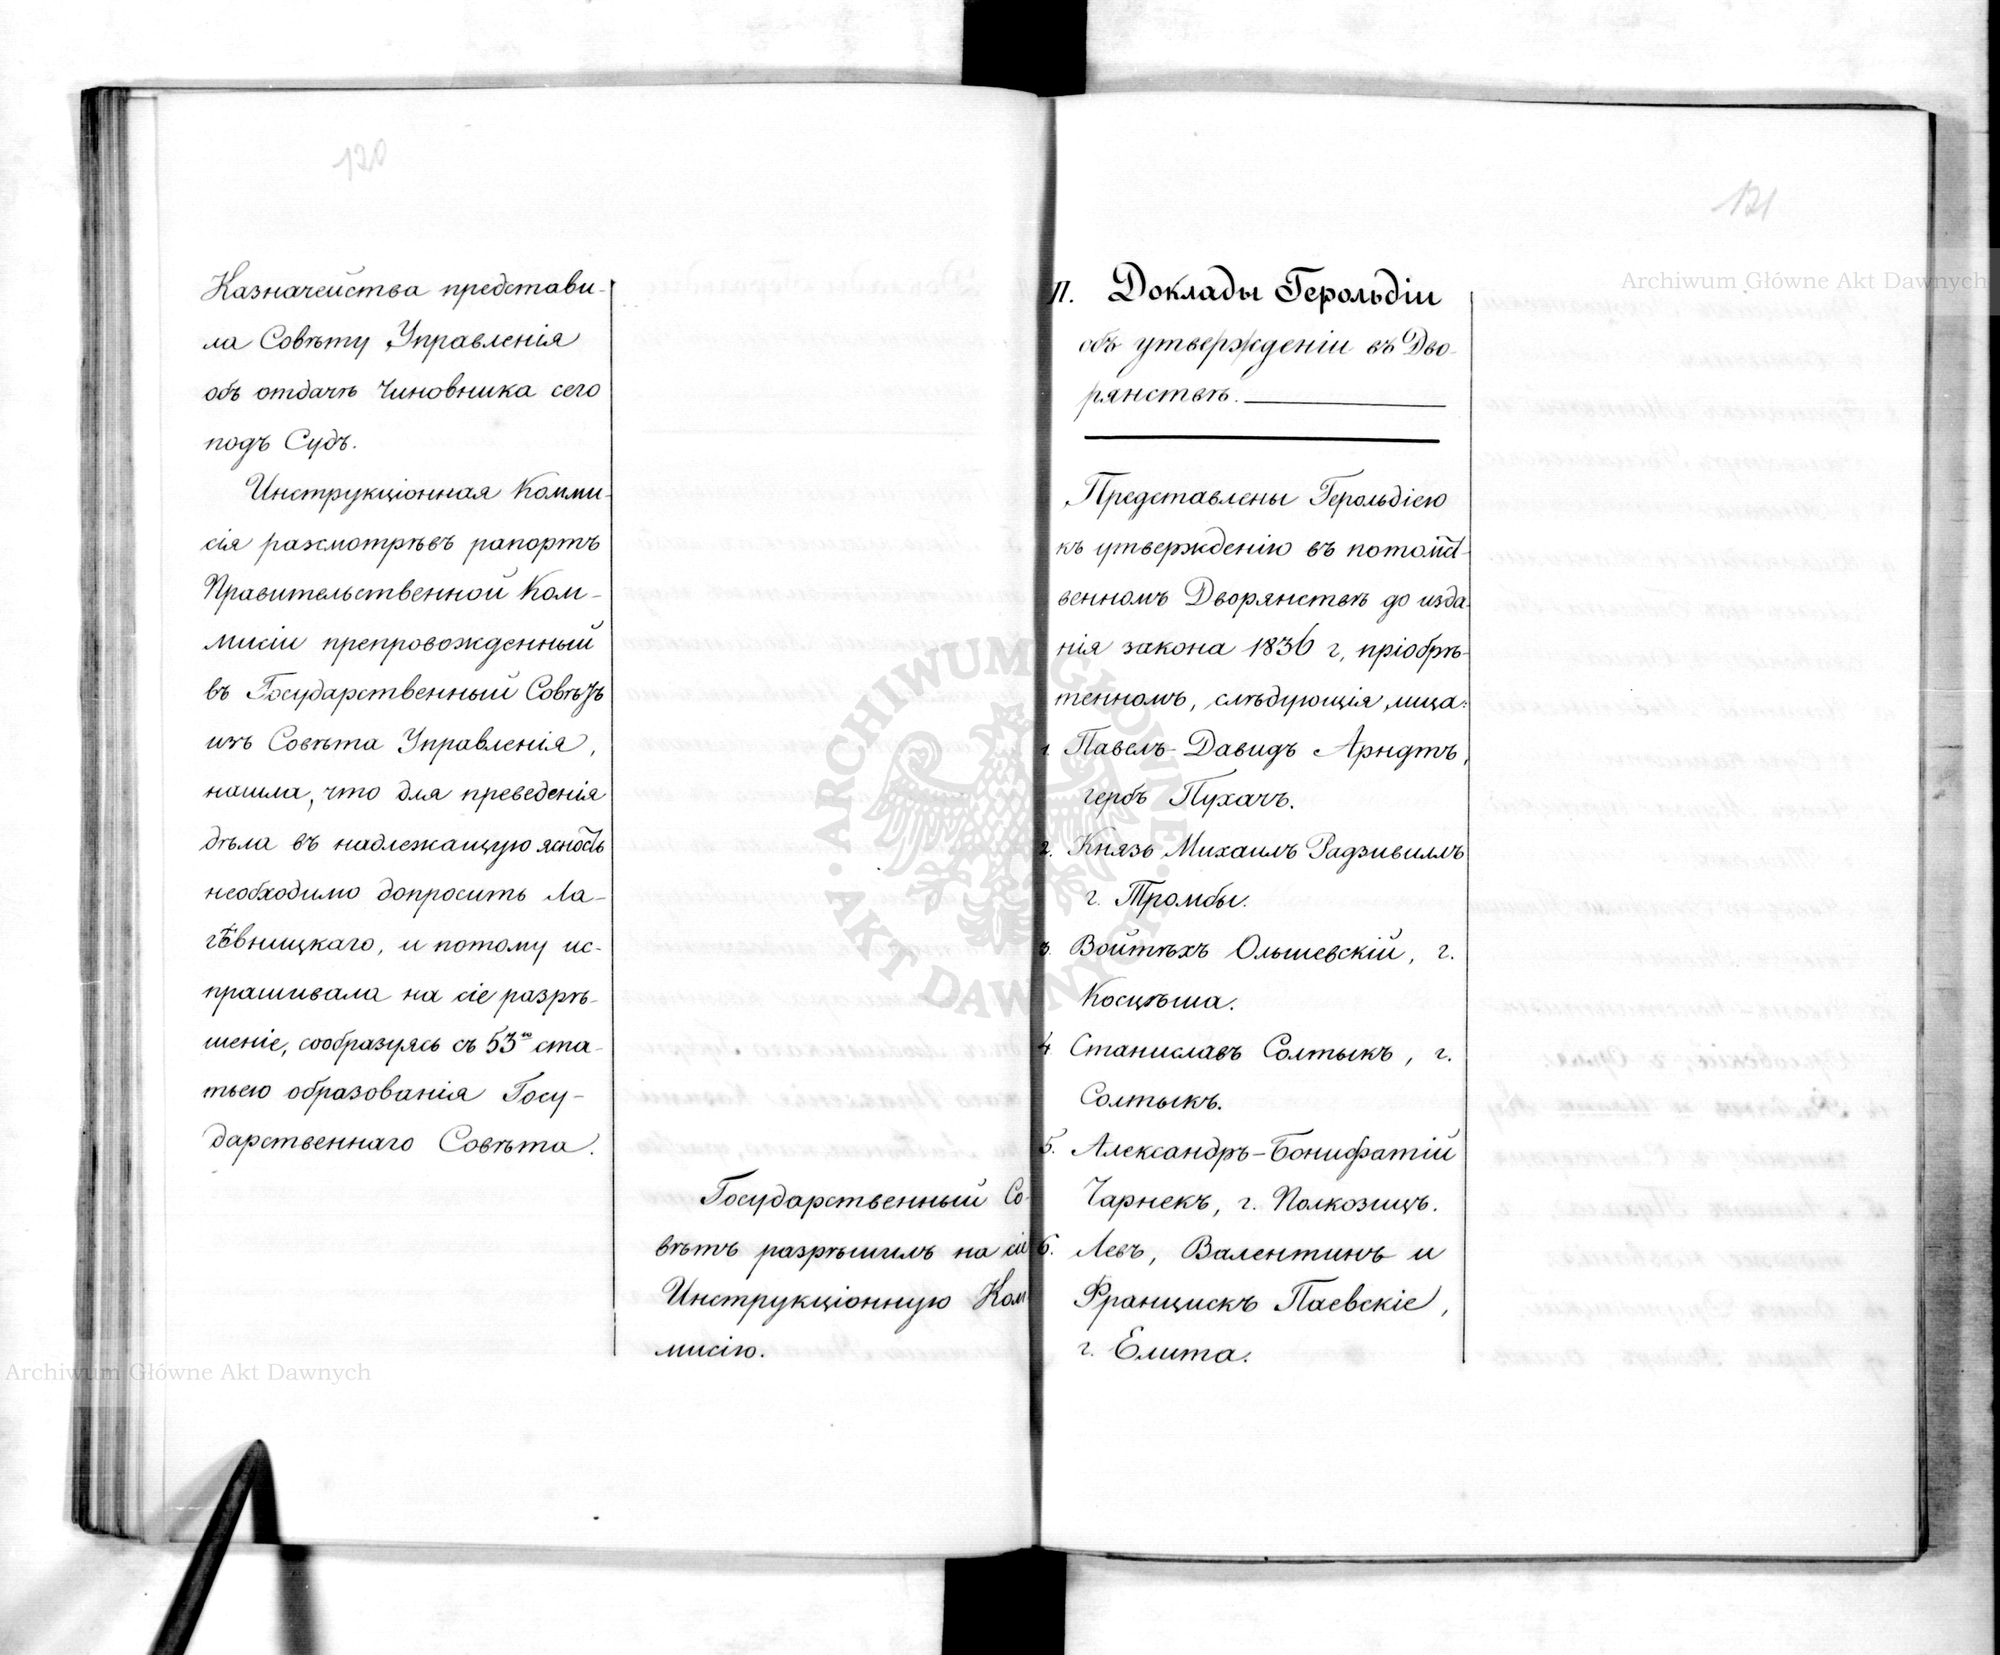 120
Казначейства представи-
ла Совѣту Управленія
объ отдачѣ Чиновника сего
подъ Судъ.
Инструкціонная Комми-
сія разсмотрѣвъ рапортъ
Правительственной Ком-
мисіи препровожденный
въ Государственный Совѣтъ
изъ Совѣта Управленія,
нашла, что для преведенія
дѣла въ надлежащую ясность
необходимо допросить Ла-
говницкаго, и потому ис-
прашивала на сіе разрѣ-
шеніе, сообразуясь съ 53ю ста-
тьею образованія Госу-
дарственнаго Совѣта.
Государственный Со-
вѣтъ разрѣшилъ на сіе
Инструкціонную Ком
мисію.
121
II. Доклады Герольдіи
объ утвержденіи въ Дво-
рянствѣ.
Представлены Герольдіею
къ утвержденію въ потомст-
венномъ Дворянствѣ до изда-
нія закона 1836 г, пріобрѣ-
тенномъ, слѣдующія лица:
1. Павелъ-Давидъ Арндтъ,
гербъ Пухачъ.
2. Князь Михаилъ Радзивиллъ
г. Тромбы.
3. Войтѣхъ Ольшевскій, г.
Косцѣша.
4. Станиславъ Солтыкъ, г.
Солтыкъ.
5. Александръ-Бонифатій
Чарнекъ, г. Полкозицъ.
6. Левъ, Валентинъ и
Францискъ Паевскіе,
г. Елита.
Archiwum Główne Akt Dawnych
Archiwum Główne Akt Dawnych
ARCHIWUM GŁÓWNE AKT DAWNYCH